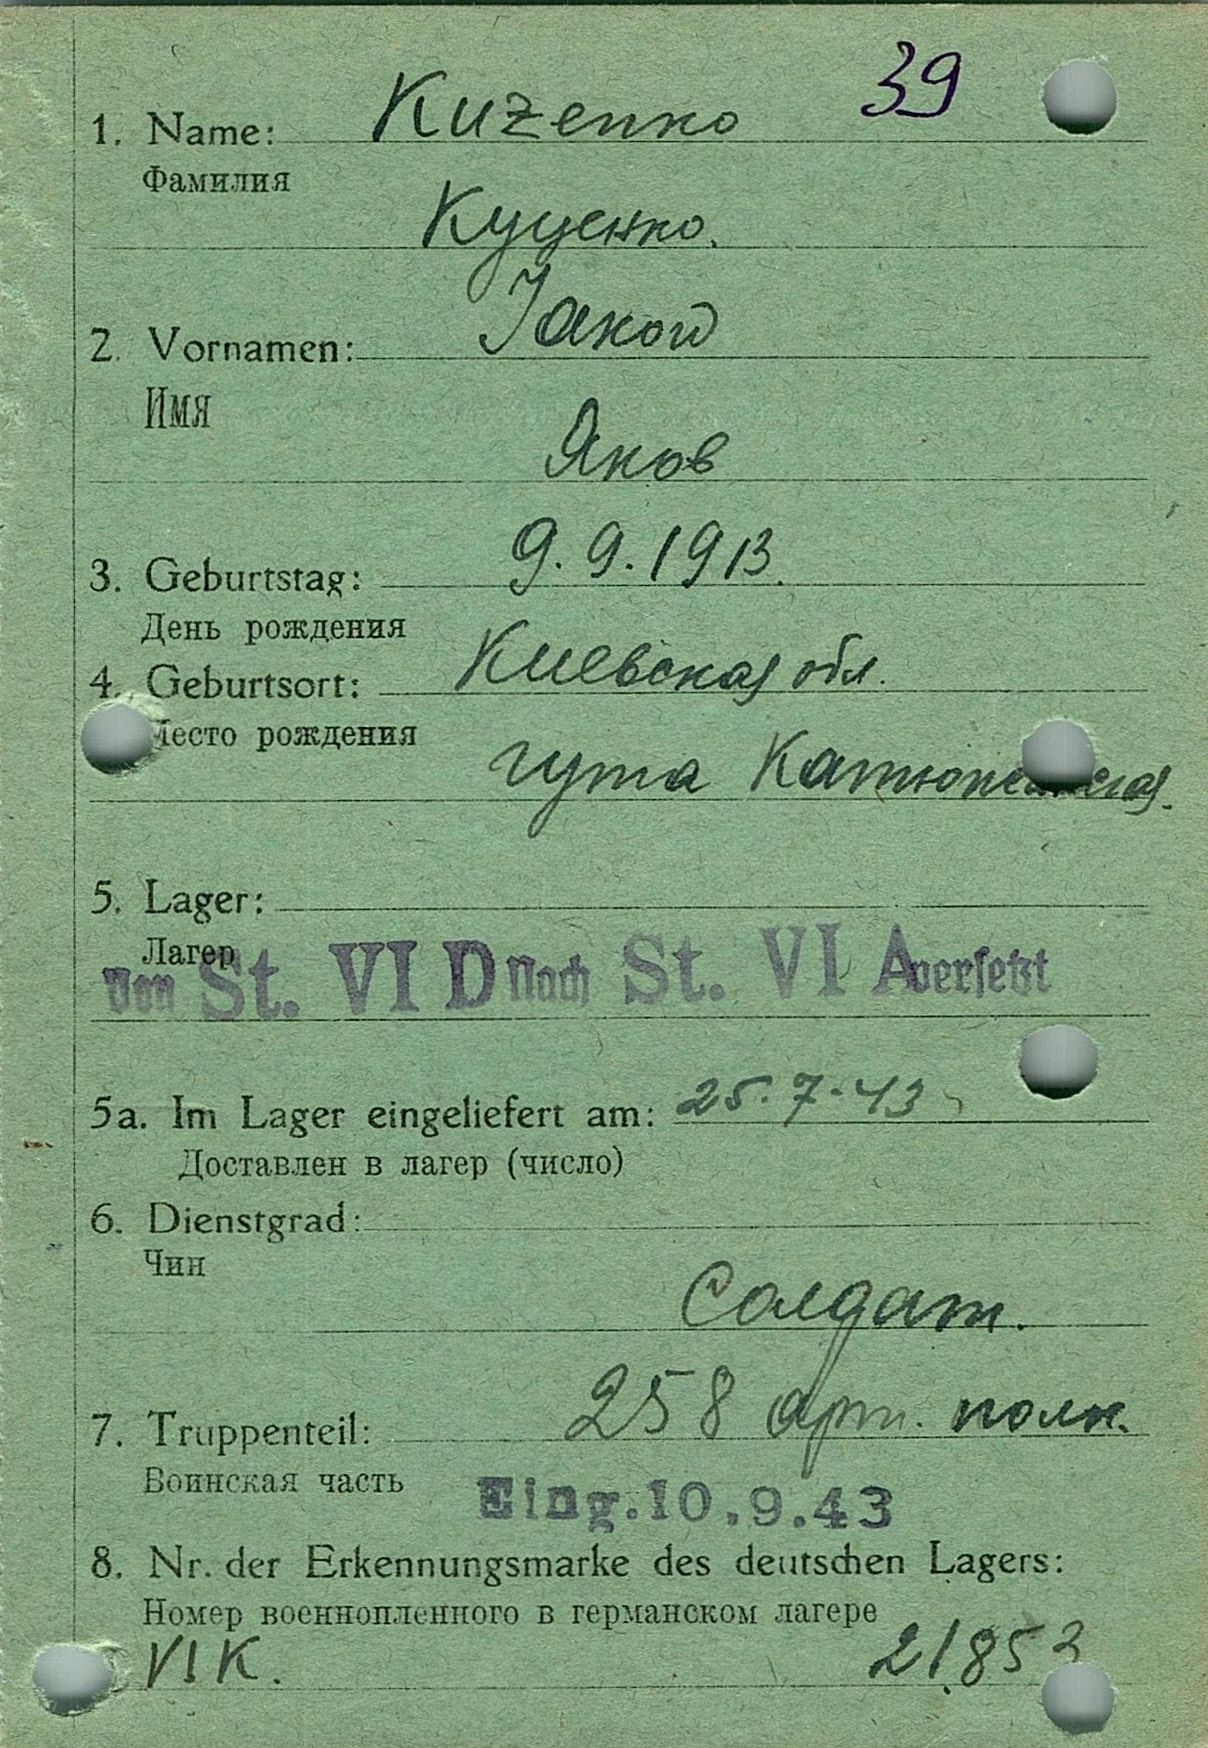 39
1. Name: Kuzenko
Фамилия
Куценко.
2. Vornamen: Jakow
Имя
Яков
9.9.1913.
3. Geburtstag:
День рождения
4. Geburtsort: Киевская обл.
Место рождения
гута Катюжанская.
5. Lager:
Лагер
Von St. VI D Nach St. VI A versetzt
5a. Im Lager eingeliefert am: 25.7.43
Доставлен в лагер (число)
6. Dienstgrad:
Чин
Солдат.
7. Truppenteil: 258 арт. полк.
Воинская часть
Eing. 10.9.43
8. Nr. der Erkennungsmarke des deutschen Lagers:
Номер военнопленного в германском лагере
VI K. 21853